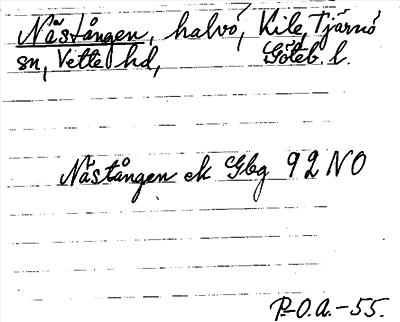 Nästången, halvö, Kile, Tjärnö
sn, Vette hd, Göteb. l.
Nästången ek Gbg 92 NO
P.-O.A.-55.